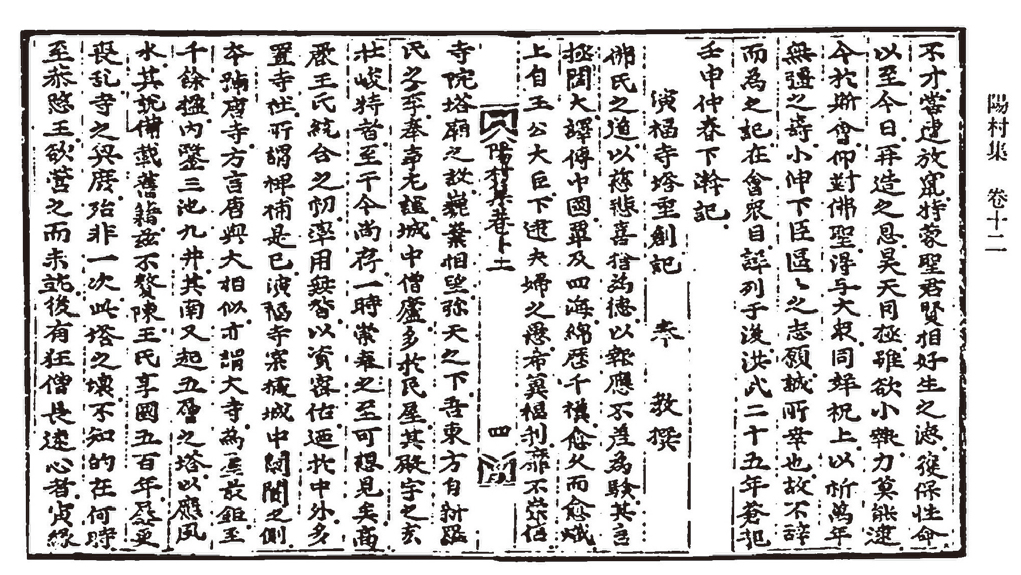 陽村集 卷十二
不才當遭放竄特蒙聖君賢相好生之德獲保性命
以至今日再造之恩昊天同極雖欲小效力莫能逮
今於斯會仰對佛聖得与大衆同辭祝上以祈萬年
無疆之壽小伸下臣區〻之志願誠所幸也故不辭
而為之記在會衆目詳列于後洪武二十五年蒼龍
壬申仲春下澣記
演福寺塔重創記 奉 教撰
佛氏之道以慈悲喜捨爲德以報應不差為驗其言
極閎大譯傳中國覃及四海綿歷千禩愈久而愈熾
上自王公大臣下逮夫婦之愚希冀福利靡不崇信
陽村集卷十二 四
寺院塔廟之設巍業相望弥天之下吾東方自新羅
氏之季奉事尤謹城中僧廬多於民屋其殿宇之宏
壯峻特者至于今尚存一時崇奉之至可想見矣高
麗王氏統合之初率用無替以資密佑迺於中外多
置寺社所謂裨補是已演福寺寔據城中閭閻之側
本號唐寺方言唐與大相似亦謂大寺為屋最鉅至
千餘楹內鑿三池九井其南又起五層之塔以應風
水其說備載舊籍茲不贅陳王氏享國五百年屢更
喪乱寺之興廢殆非一次此塔之壞不知的在何時
至恭愍王欲營之而未就後有狂僧長遠心者夤緣